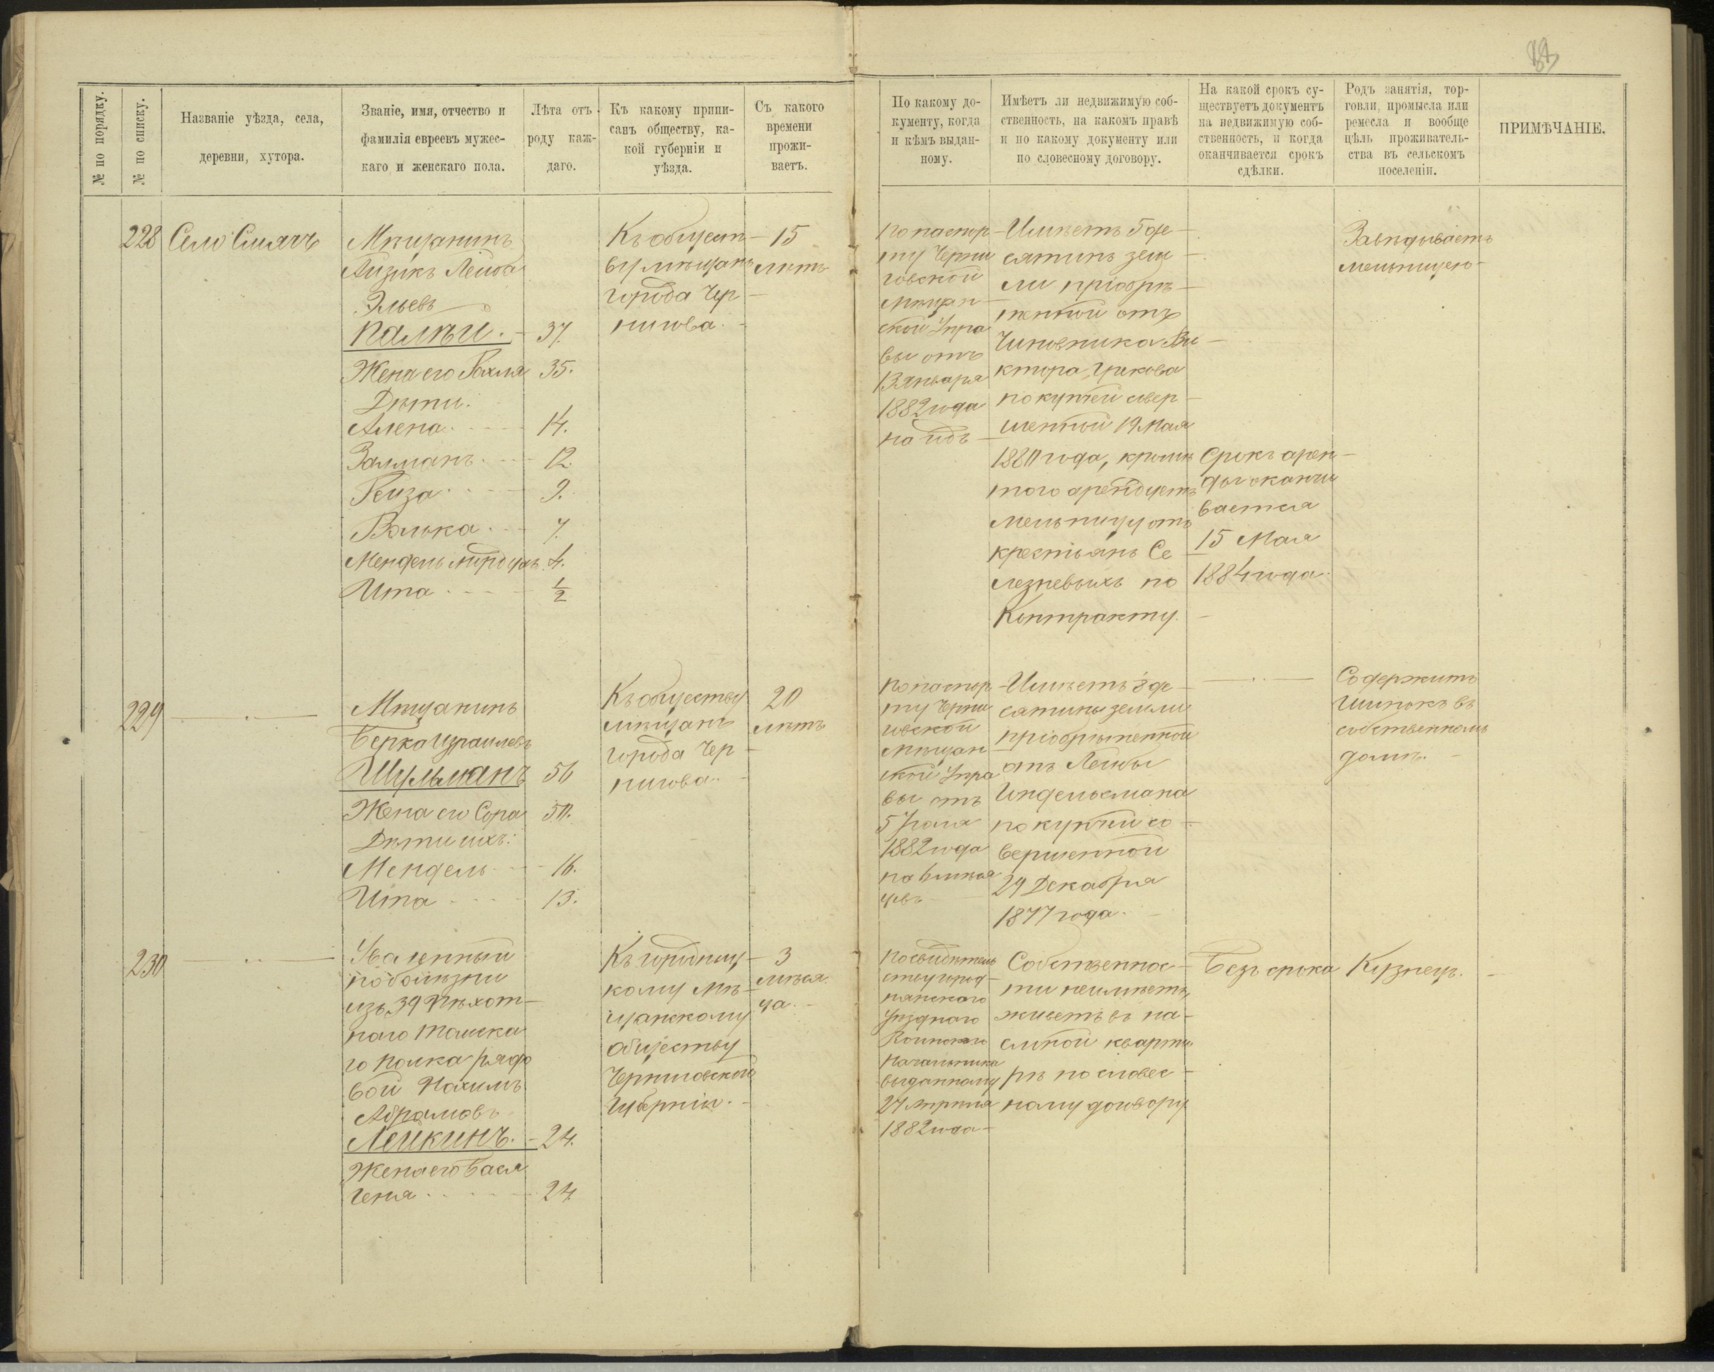 № по порядку.
№ по списку.
Названіе уѣзда, села,
деревни, хутора.
Званіе, имя, отчество и
фамилія евреевъ мужес-
каго и женскаго пола.
Лѣта отъ
роду каж-
даго.
Къ какому припи-
санъ обществу, ка-
кой губерніи и
уѣзда.
Съ какого
времени
прожи-
ваетъ.
По какому до-
кументу, когда
и кѣмъ выдан-
ному.
Имѣетъ ли недвижимую соб-
ственность, на какомъ правѣ
и по какому документу или
по словесному договору.
На какой срокъ су-
ществуетъ документъ
на недвижимую соб-
ственность, и когда
оканчивается срокъ
сдѣлки.
Родъ занятія, тор-
говли, промысла или
ремесла и вообще
цѣль проживатель-
ства въ сельскомъ
поселеніи.
ПРИМѢЧАНІЕ.
228
Село Смячъ
Мѣщанинъ
Айзикъ Лейба
Эльевъ
Палѣй. - 37.
Жена его Рохля 35.
Дѣти.
Алена 14.
Залманъ 12
Рейза 9.
Волька 7.
Мендель 4.
Ита 1/2
Къ общест-
ву мѣщанъ
города Чер-
нигова.
15
лѣтъ
По паспор-
ту Черни
говской
Мѣщан-
ской Упра
вы отъ
13 Января
1882 года
на годъ
Имѣетъ 5 де-
сятинъ зем-
ли пріобрѣ-
тенной отъ
Чиновника Ви-
ктора
по купчей совер-
шенной 19 Мая
1880 года, кромѣ
того арендуетъ
мельницу отъ
крестьянъ Се-
лезневыхъ по
Контракту.
Срокъ арен-
ды оканчи
вается
15 Мая
1884 года.
Завѣдываетъ
мельницею
229
Мѣщанинъ
Берка Израилевъ
Шульманъ 56
Жена его Сора 50.
Дѣти ихъ:
Мендель 16.
Ита 13.
Къ обществу
мѣщанъ
города Чер
нигова.
20
лѣтъ
По паспор-
ту Черни
говской
Мѣщан
ской Упра
вы отъ
5 Іюля
1882 года
на 6 мѣся
цевъ
Имѣетъ 8 де-
сятины земли
пріобрѣтенной
отъ Лейбы
Индельсмана
по купчей со-
вершенной
29 Декабря
1877 года.
Содержитъ
Шинокъ въ
собственномъ
домѣ.
230
Уволенный
по болѣзни
изъ 39 Пѣхот-
наго Томска
го полка рядо
вой Нохимъ
Абрамовъ
Лейкинъ. - 24.
Жена его Бася
Геня 24
Къ Городниц-
кому Мѣ-
щанскому
обществу
Черниговской
Губерніи.
3
мѣся
ца.
По свидѣтель
ству Город-
нянскаго
Уѣзднаго
Воинскаго
Начальника
выданному
27 Апрѣля
1882 года
Собственнос-
ти не имѣетъ,
живетъ въ на-
емной кварти
рѣ по словес-
ному договору
Безъ срока
Кузнецъ.